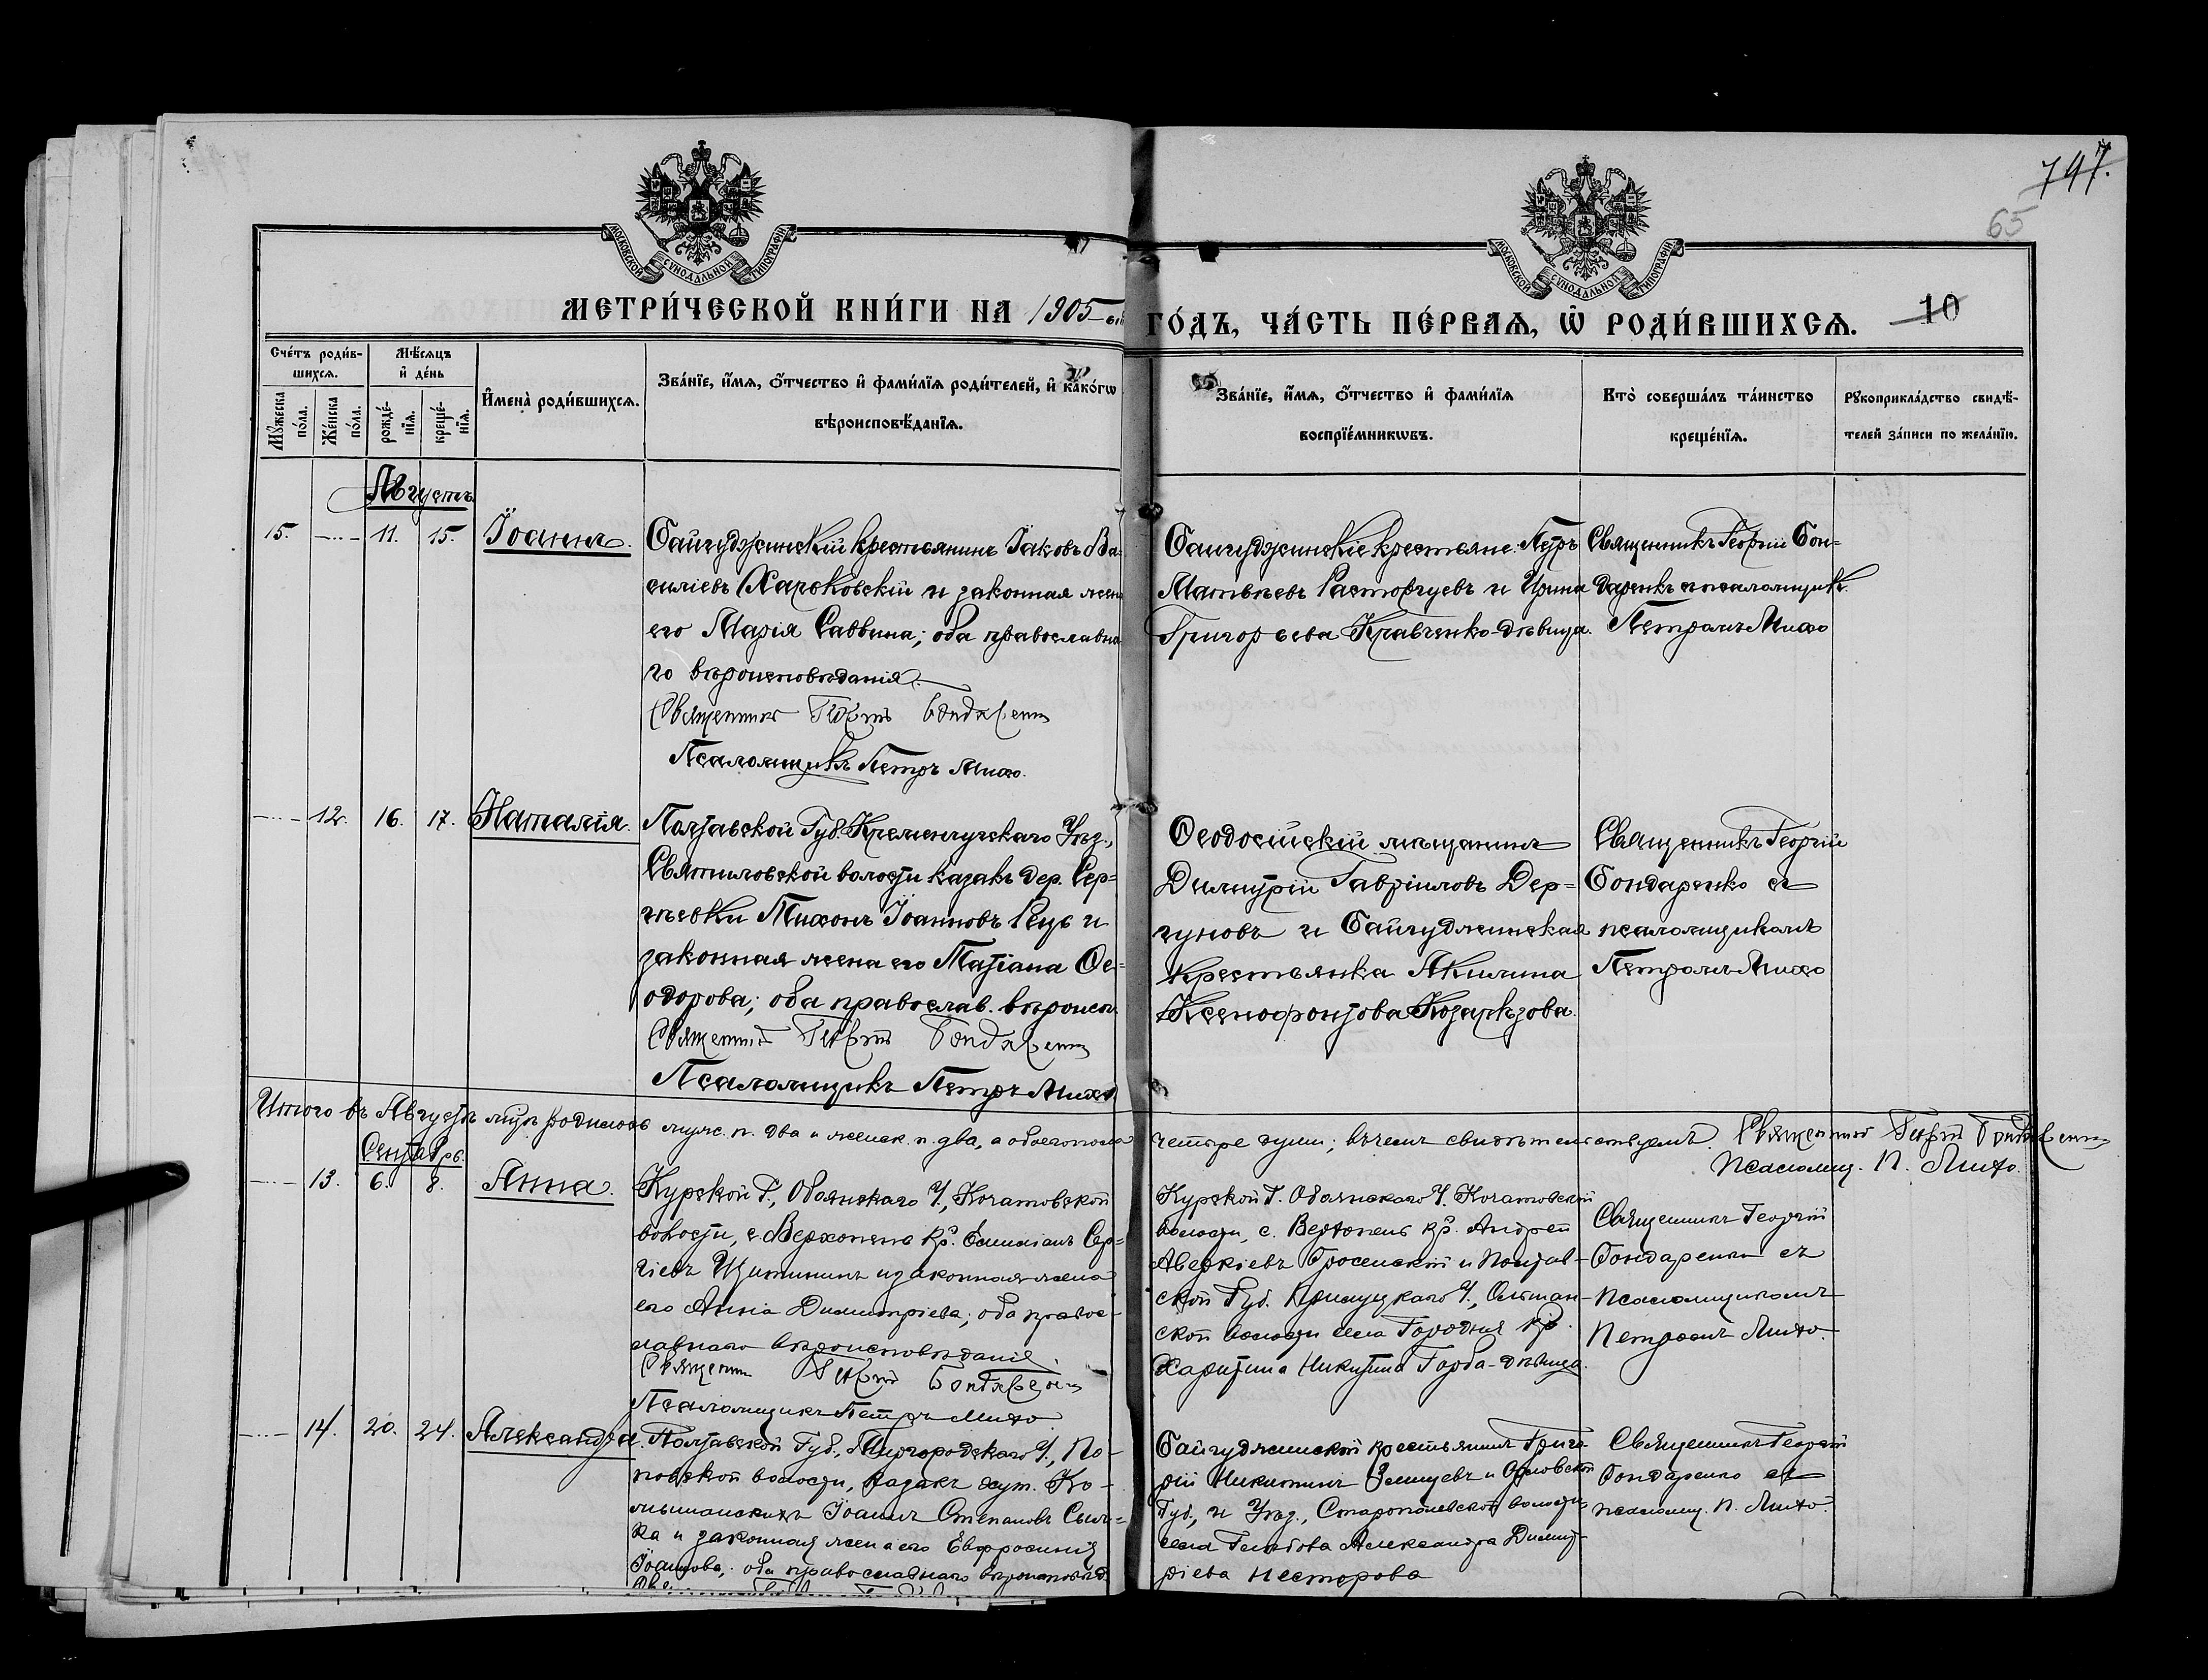 747.
65
МОСКОВСКОЙ СУНОДАЛЬНОЙ ТИПОГРАФІИ
МОСКОВСКОЙ СУНОДАЛЬНОЙ ТИПОГРАФІИ
МЕТРИ́ЧЕСКОЙ КНИ́ГИ НА 1905
ГО́ДЪ, ЧА́СТЬ ПЕ́РВАѦ, Ѡ҆ РОДИ́ВШИХСѦ.
10
Сче́тъ роди́в-
шихсѧ.
Мꙋ́жеска
по́ла.
Же́нска
по́ла.
Мѣ́сѧцъ
и҆ де́нь
рожде́-
нїѧ.
креще́-
нїѧ.
И҆мена̀ роди́вшихсѧ.
Зва́нїе, и҆́мѧ, ѻ҆́тчество и҆ фами́лїѧ роди́телей, и҆ како́гѡ
вѣроисповѣ́данїѧ.
Зва́нїе, и҆́мѧ, ѻ҆́тчество и҆ фами́лїѧ
воспрїе́мникѡвъ.
Кто̀ соверша́лъ та́инство
креще́нїѧ.
Рꙋкоприкла́дство свидѣ́-
телей за́писи по жела́нїю.
Августъ
15. 11. 15. Іоаннъ.
Байгуджинскій крестьянинъ Іаковъ Ва-
силіевъ Харьковскій и законная жена
его Марія Саввина; оба православна-
го вѣроисповѣданія.
Священникъ Георгій Бондаренко
Псаломщикъ Петръ Михо.
Байгуджинскіе крестьяне: Петръ
Матвѣевъ Расторгуевъ и Ирина
Григорьева Кравченко-дѣвица.
Священникъ Георгій Бон-
даренко съ псаломщик.
Петромъ Михо
12. 16. 17. Наталія.
Полтавской Губ. Кременчугскаго Уѣз.,
Святиловской волости казакъ дер. Сер-
гѣевки Тихонъ Іоанновъ Рецъ и
законная жена его Татіана Ѳе-
одорова; оба православ. вѣроисп.
Священникъ Георгій Бондаренко
Псаломщикъ Петръ Михо
Ѳеодосійскій мѣщанинъ
Димитрій Гавріиловъ Дер-
гуновъ и Байгуджинская
крестьянка Акилина
Ксенофонтова
Священникъ Георгій
Бондаренко съ
псаломщикомъ
Петромъ Михо
Итого въ Августѣ мѣц. родилось муж. п. два и женск. п. два, а обоего пола
четыре души; въ чемъ свидѣтельствуемъ. Священникъ Георгій Бондаренко
Псаломщ. П. Михо.
Сентябрь.
13. 6. 8. Анна.
Курской Г., Обоянскаго У., Кочатовской
волости, с. Верхопенъ кр. Емиліанъ Сер-
гіевъ Щитининъ и законная жена
его Анна Димитріева; оба правос-
лавнаго вѣроисповѣданія.
Священникъ Георгій Бондаренко
Псаломщикъ Петръ Михо
Курской Г. Обоянскаго У. Кочатовской
волости, с. Верхопенъ кр. Андрей
Аверкіевъ и Полтав-
ской Губ. Прилуцкаго У., Ольшан-
ской волости села Городня кр.
Харитина Никитина Горба-дѣвица.
Священникъ Георгій
Бондаренко съ
Псаломщикомъ
Петромъ Михо.
14. 20. 24. Александра.
Полтавской Губ., Миргородскаго У., По-
повской волости, казакъ хут. Ко-
Іоаннъ Степановъ
и законная жена его Евфросинія
Іоаннова; оба православнаго вѣроисповѣд.
Байгуджинской крестьянинъ Григо-
рій Никитинъ и Орловской
Губ., и Уѣзд., волости,
села Александра Димит-
ріева Несторова
Священникъ Георгій
Бондаренко съ
псаломщ. П. Михо.